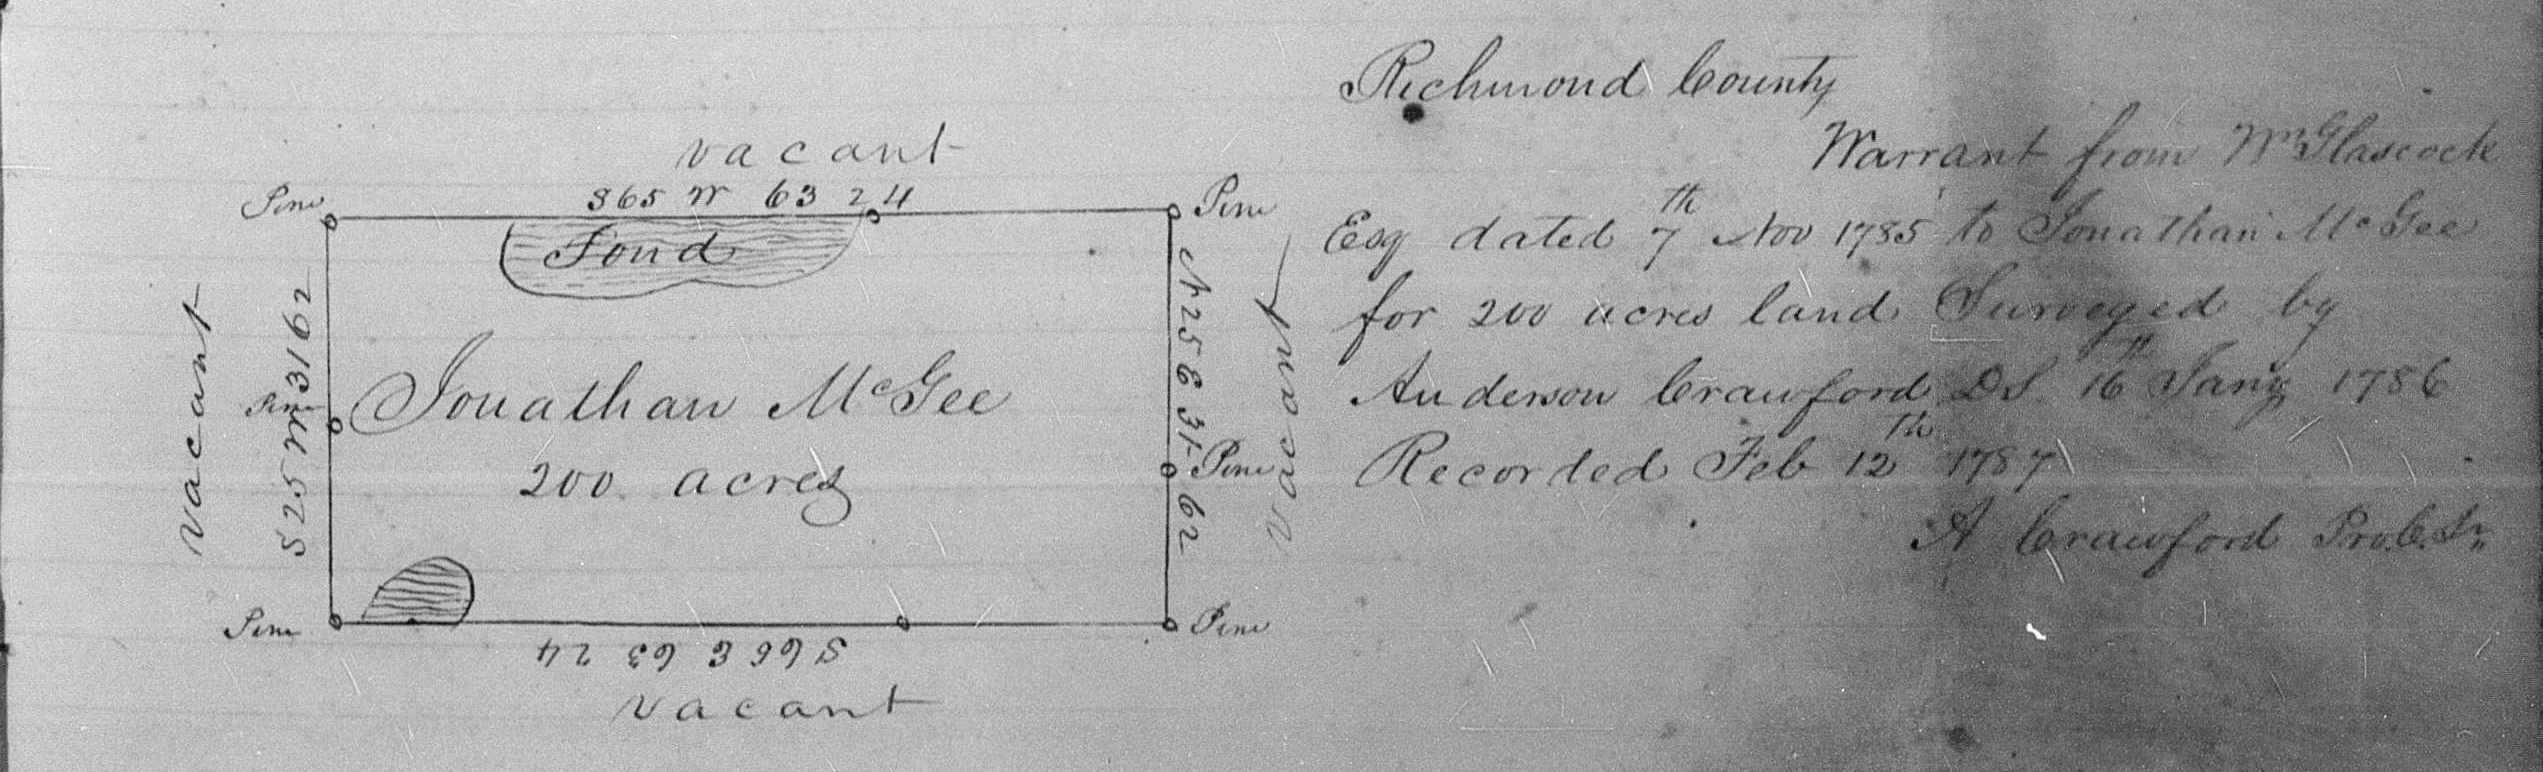 vacant
Pine
S 65 W 63 24
Pine
Pond
vacant
S 25 W 31 62
Pine
Jonathan McGee
200 acres
N 25 E 31 62
Pine
vacant
Pine
Pine
S 66 E 63 24
vacant
Richmond County
Warrant from Wm Glascock
Esq dated 7th Nov 1785 to Jonathan McGee
for 200 acres land Surveyed by
Anderson Crawford D.S. 16th Jany 1786
Recorded Feb 12th 1787
A Crawford Pro. C. Sr